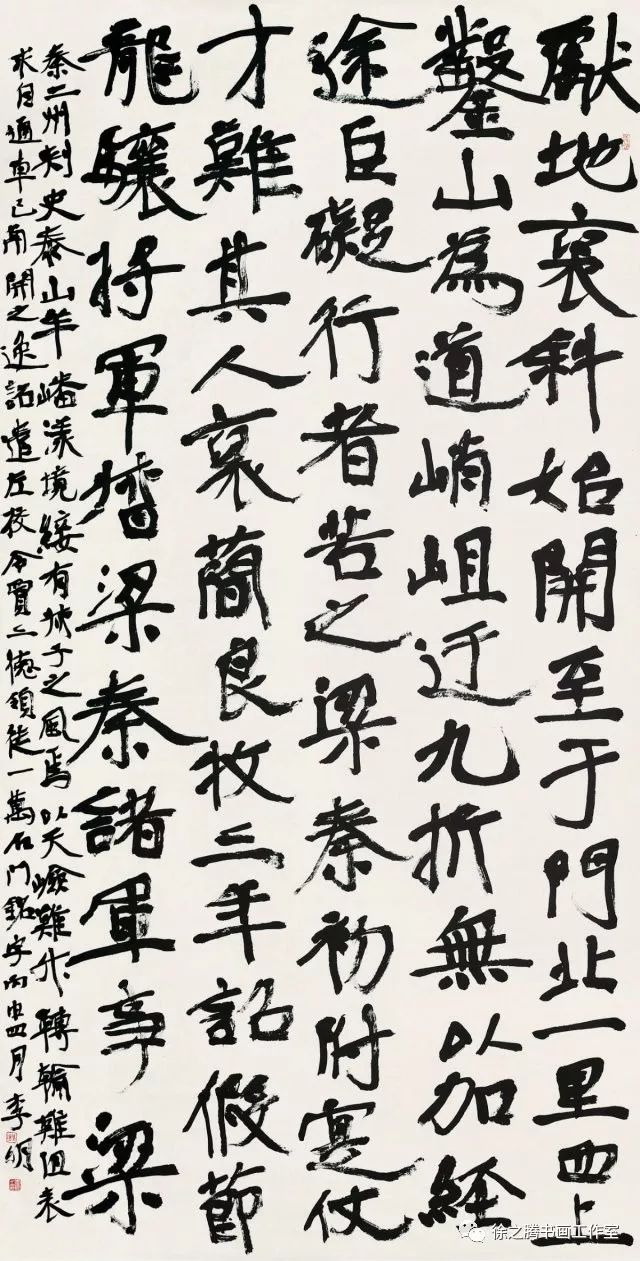 獻地褒斜始開至于門北一里西上
鑿山為道峭岨迂九折無以加經
途巨礙行者苦之梁秦初附寔仗
才難其人褒蕳良牧三年詔假節
龍驤將軍督梁秦諸軍事梁
秦二州刾史泰山羊嶓漾境綏有叔子之風焉以天嶮難升轉輸難阻表
求自迴車已南開之逸詔遣左校令賈三德領徒一萬石門銘字丙申四月李明
徐之腾书画工作室